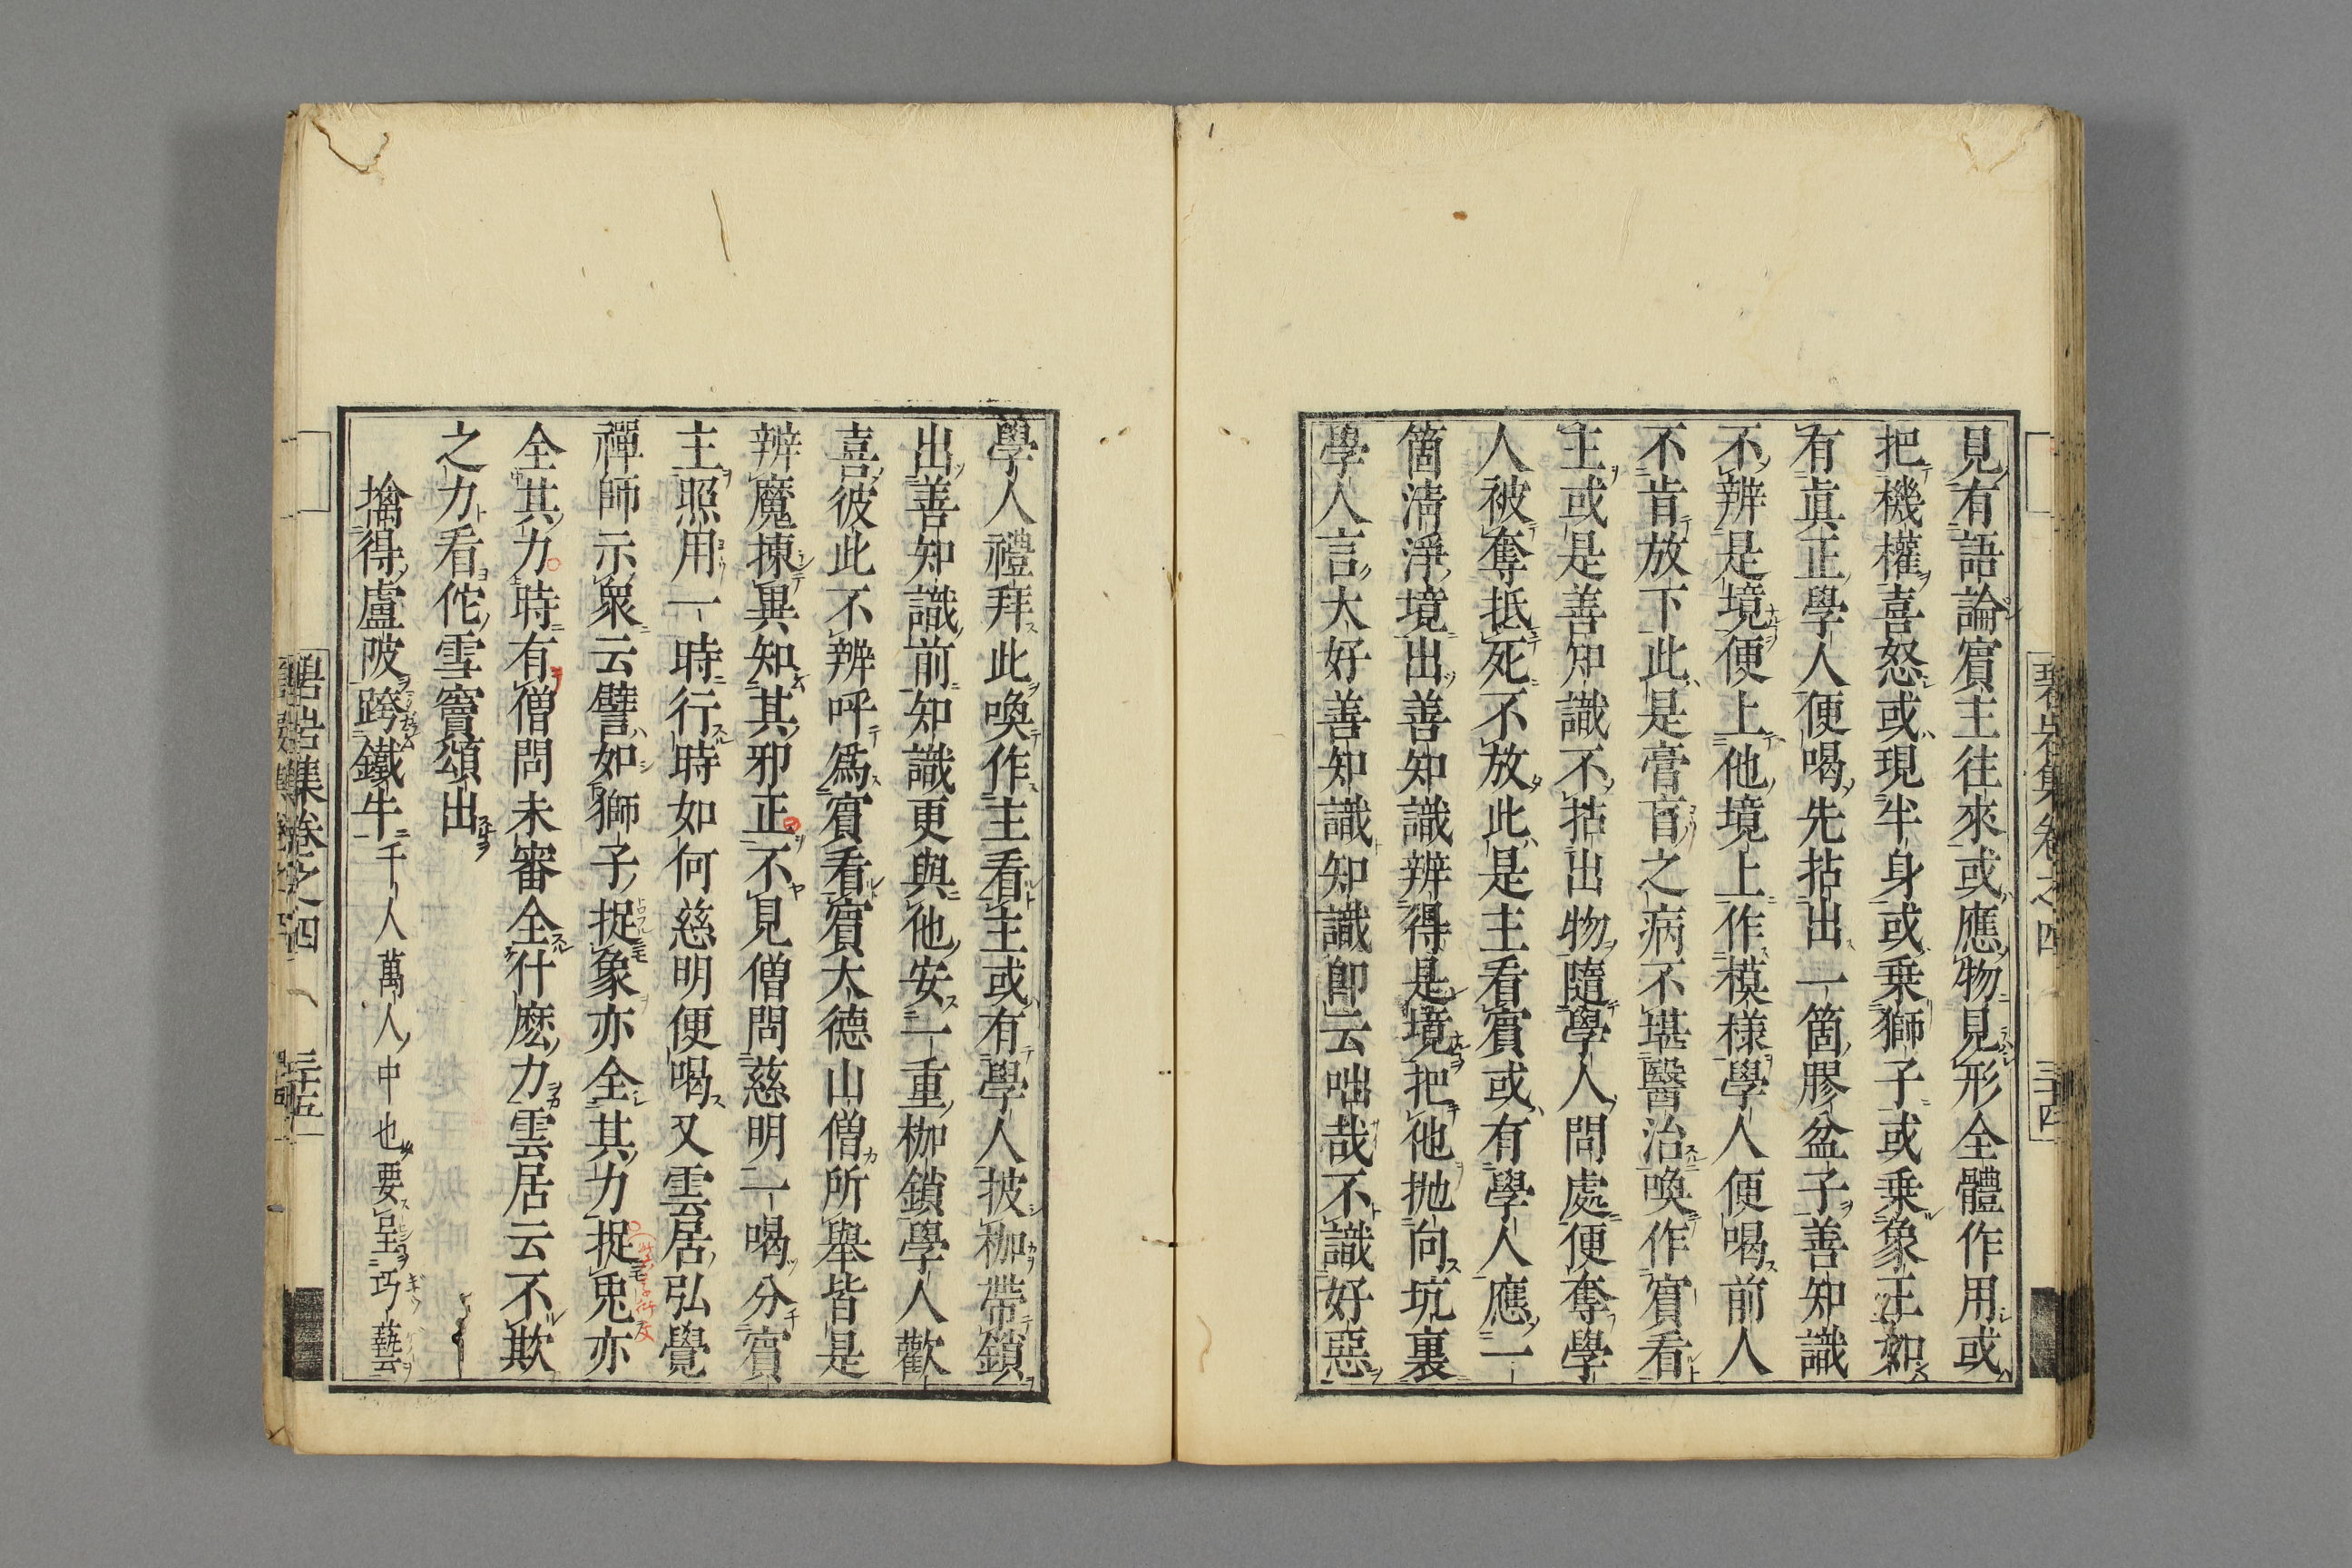 見有語論賓主往來或應物見形全體作用或
把機權喜怒或現半身或乗獅子或乗象王如
有眞正學人便喝先拈出一箇膠盆子善知識
不辨是境便上他境上作模樣學人便喝前人
不肯放下此是膏肓之病不堪醫治喚作賓看
主或是善知識不拈出物隨學人問處便奪學
人被奪抵死不放此是主看賓或有學人應一
箇淸淨境出善知識辨得是境把他抛向坑裏
學人言大好善知識知識卽云咄哉不識好惡
學人禮拜此喚作主看主或有學人披枷帶鎖
出善知識前知識更與他安一重枷鎖學人歡
喜彼此不辨呼爲賓看賓大德山僧所舉皆是
辨魔揀異知其邪正不見僧問慈明一喝分賓
主照用一時行時如何慈明便喝又雲居弘覺
禪師示衆云譬如獅子捉象亦全其力捉兎亦
全其力時有僧問未審全什麽力雲居云不欺
之力看佗雪竇頌出
擒得盧陂跨鐵牛千人萬人中也要呈巧藝
碧岩集卷之四 三十四
碧岩集卷之四 三十五